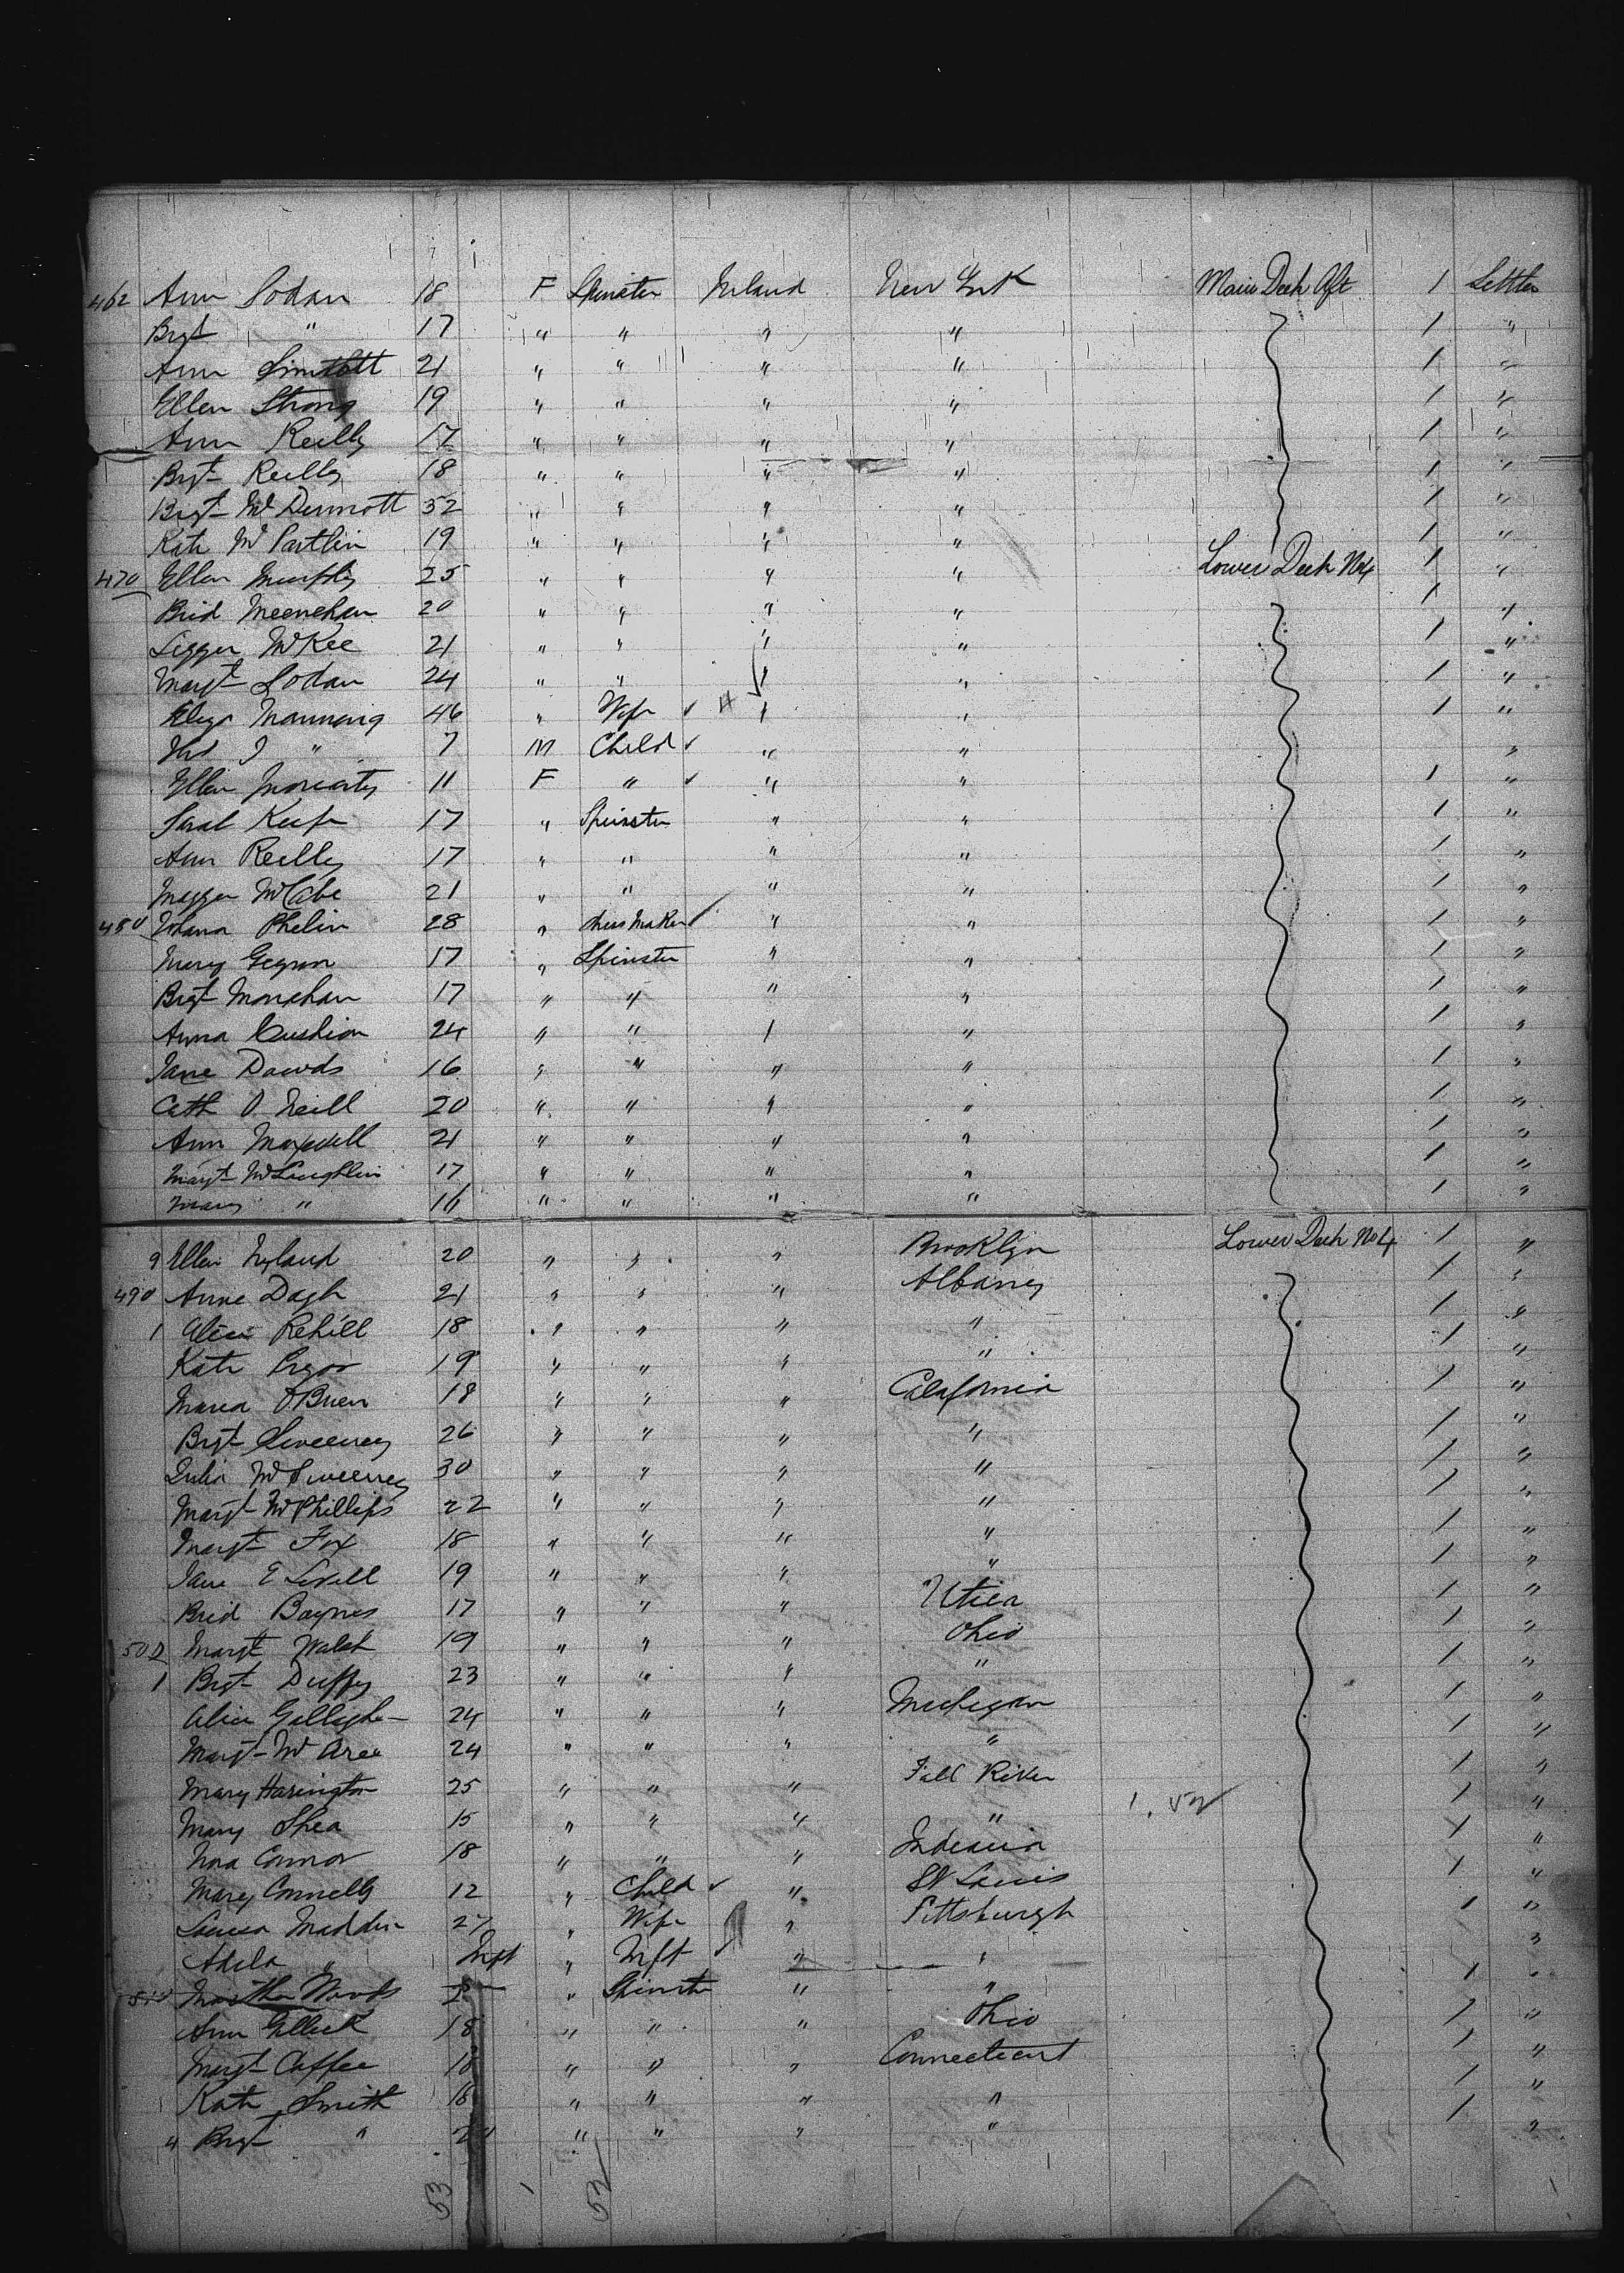 462 Ann Sodan 18 F Spinster Ireland New York Main Deck Aft 1 Settler
Brgt " 17 " " " " 1 "
Ann Sinnott 21 " " " " 1 "
Ellen Strong 19 " " " " 1 "
Ann Reilly 17 " " " " 1 "
Brgt Reilly 18 " " " " 1 "
Brgt McDermott 32 " " " " 1 "
Kate McPartlin 19 " " " " 1 "
470 Ellen Murphy 25 " " " " Lower Deck No4 1 "
Brid Meenehan 20 " " " " 1 "
McKee 21 " " " " 1 "
Margt Sodan 24 " " " " 1 "
Eliza Manning 46 " Wife " " 1 "
" 7 M Child " " "
Ellen Moriarty 11 F " " " 1 "
Sarah Keefe 17 " Spinster " " 1 "
Ann Reilly 17 " " " " 1 "
Maggie McCabe 21 " " " " 1 "
480 Johana Phelin 28 " Dress Maker " " 1 "
Mary 17 " Spinster " " 1 "
Brgt Monahan 17 " " " " 1 "
Anna Cushion 24 " " " " 1 "
Jane Dowds 16 " " " " 1 "
Cath O Neill 20 " " " " 1 "
Ann Maxwell 21 " " " " 1 "
Margt McLoughlin 17 " " " " 1 "
Mary " 16 " " " " 1 "
9 Ellen Nyland 20 " " " Brooklyn Lower Deck No4 1 "
490 Anne 21 " " " Albany 1 "
1 Alice Rehill 18 " " " " 1 "
Kate 19 " " " " 1 "
Maria O'Brien 18 " " " Calafornia 1 "
Brgt Sweeney 26 " " " " 1 "
Julia McSweeney 30 " " " " 1 "
Margt McPhillips 22 " " " " 1 "
Margt Fox 18 " " " " 1 "
Jane E 19 " " " " 1 "
Brid Baynes 17 " " " Utica 1 "
500 Margt Walsh 19 " " " Ohio 1 "
1 Brgt Duffy 23 " " " " 1 "
Alice Gallagher 24 " " " Michigan 1 "
Margt McAree 24 " " " " 1 "
Mary Harington 25 " " " Fall River 1 "
Mary Shea 15 " " " " 1 "
Nora Connor 18 " " " Indeana 1 "
Mary Connelly 12 " Child " St Louis 1 "
Louisa Madden 27 " Wife " Pittsburgh 1 "
Adela " Inft " Inft " " "
510 Martha Woods " Spinster " " 1 "
Ann 18 " " " Ohio 1 "
Margt Caffee 18 " " " Connecticut 1 "
Kate Smith 18 " " " " 1 "
4 Brgt " 20 " " " " 1 "
53 52